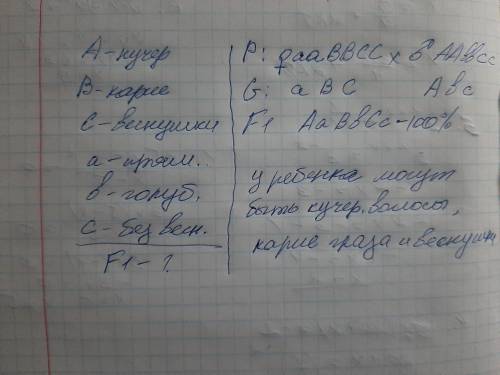 А-кучер
В-карие
С-веснушки
а-прям.
в-голуб.
с-без весн.
F1-?
P: ♀ааВВСС х ♂ААввсс
G: аВС Авс
F1 АаВвСс-100%
у ребенка могут
быть кучер. волосы,
карие глаза и веснушки